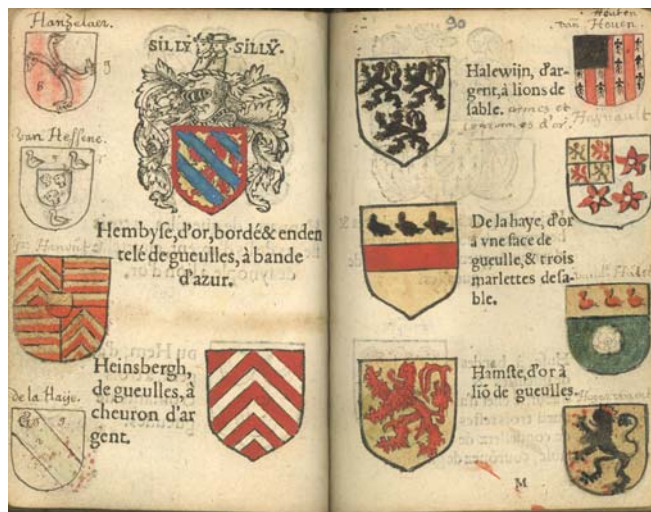 Hanzelaer.
SILLY SILLY.
van Hessene.
Hembyse, d'or, bordé & enden
telé de gueulles, à bande
d'azur.
Heinsbergh,
de gueulles, à
cheuron d'ar
gent.
de la Haije.
90
Houten
van Houen.
Halewijn, d'ar-
gent, à lions de
sable. armes et
couronnes d'or.
Haynault
De la haye, d'or
à vne face de
gueulle, & trois
marlettes de sa-
ble.
Hamste, d'or à
liõ de gueulles.
M